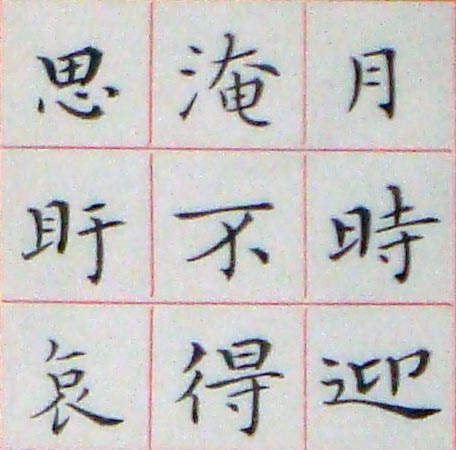 月時迎
淹不得
思盱哀